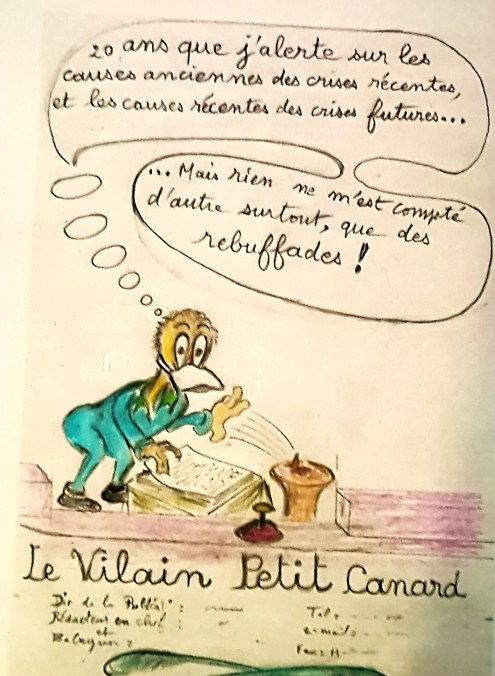 20 ans que j'alerte sur les
causes anciennes des crises récentes,
et les causes récentes des crises futures...
... Mais rien ne m'est compté
d'autre surtout, que des
rebuffades !
Le Vilain Petit Canard
Dir de la :
Rédacteur en chef :
et
Tel :
e-mail :